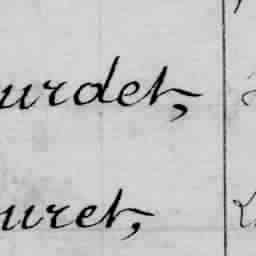 urdet,
uret,